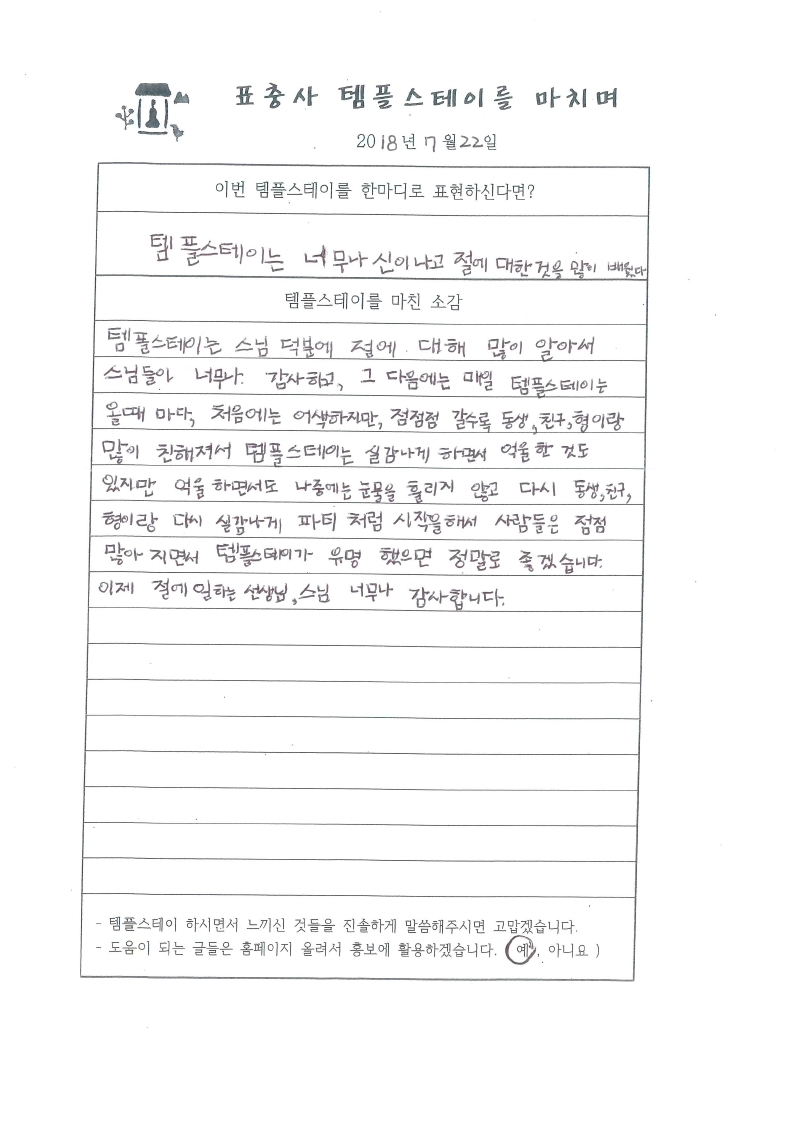 표충사 템플스테이를 마치며
2018년 7월22일
이번 템플스테이를 한마디로 표현하신다면?
템플스테이는 너무나 신이나고 절에 대한것을 많이 배웠다
템플스테이를 마친 소감
템플스테이는 스님 덕분에 절에 대해 많이 알아서
스님들이 너무나 감사하고, 그 다음에는 매일 템플스테이는
올때 마다, 처음에는 어색하지만, 점점점 갈수록 동생,친구,형이랑
많이 친해져서 템플스테이는 실감나게 하면서 억울한 것도
있지만 억울하면서도 나중에는 눈물을 흘리지 않고 다시 동생,친구,
형이랑 다시 실감나게 파티 처럼 시작을해서 사람들은 점점
많아 지면서 템플스테이가 유명 했으면 정말로 좋겠습니다.
이제 절에 일하는 선생님,스님 너무나 감사합니다.
- 템플스테이 하시면서 느끼신 것들을 진솔하게 말씀해주시면 고맙겠습니다.
- 도움이 되는 글들은 홈페이지 올려서 홍보에 활용하겠습니다. ( 예 , 아니요 )